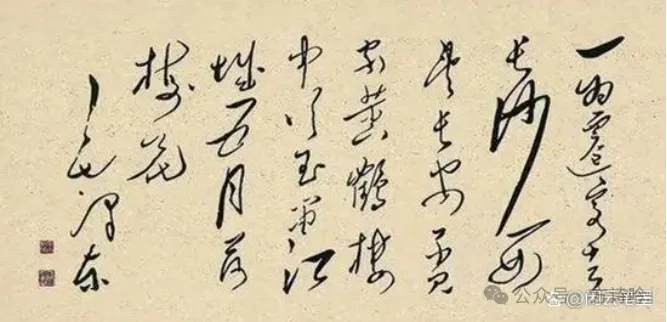 一为迁客去
长沙西
望长安不见
家黄鹤楼
中吹玉笛江
城五月落
梅花
毛泽东
公众号